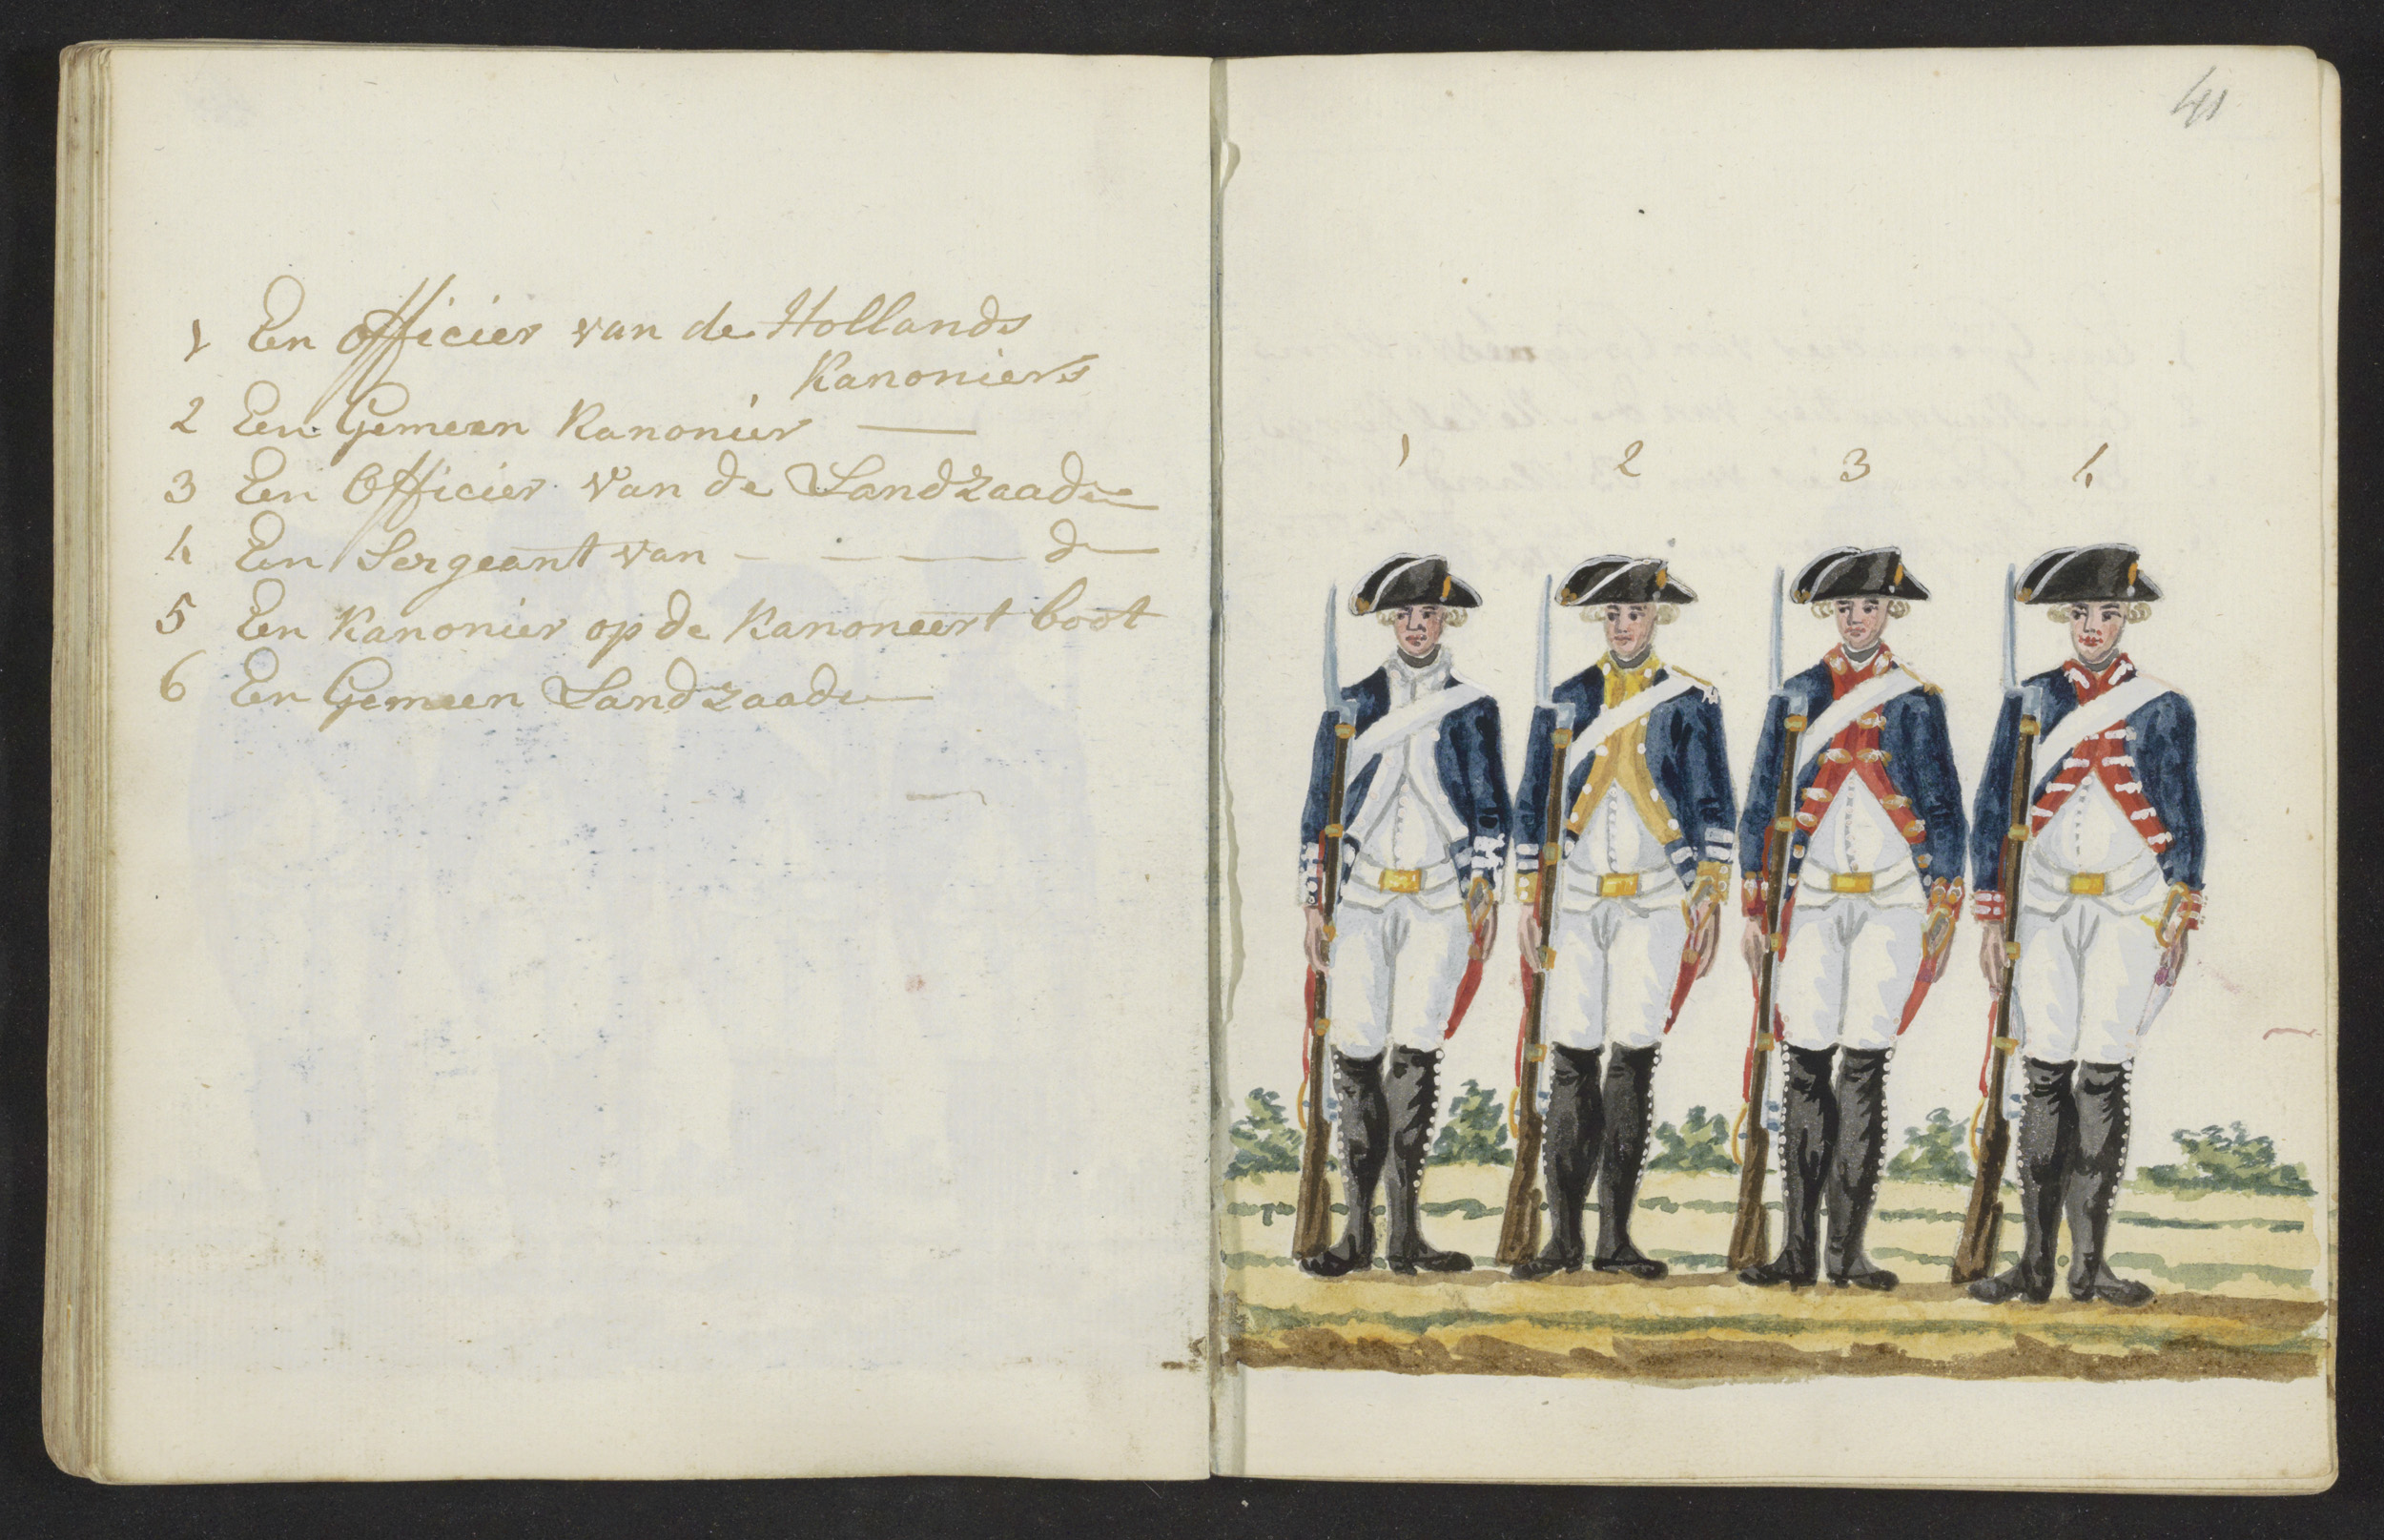 1 Een officier van de Hollands
Kanoniers
2 Een Gemeen Kanonier —
3 Een Officier van de Landzaade
4 Een Sergeant van - - — d —
5 Een Kanonier op de Kanoneert boot
6 Een Gemeen Landzaade
41
1 2 3 4